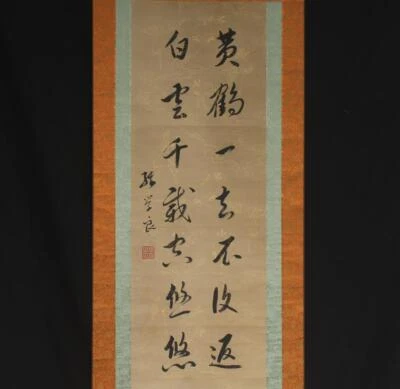 黄鶴一去不復返
白雲千載空悠悠
張学良